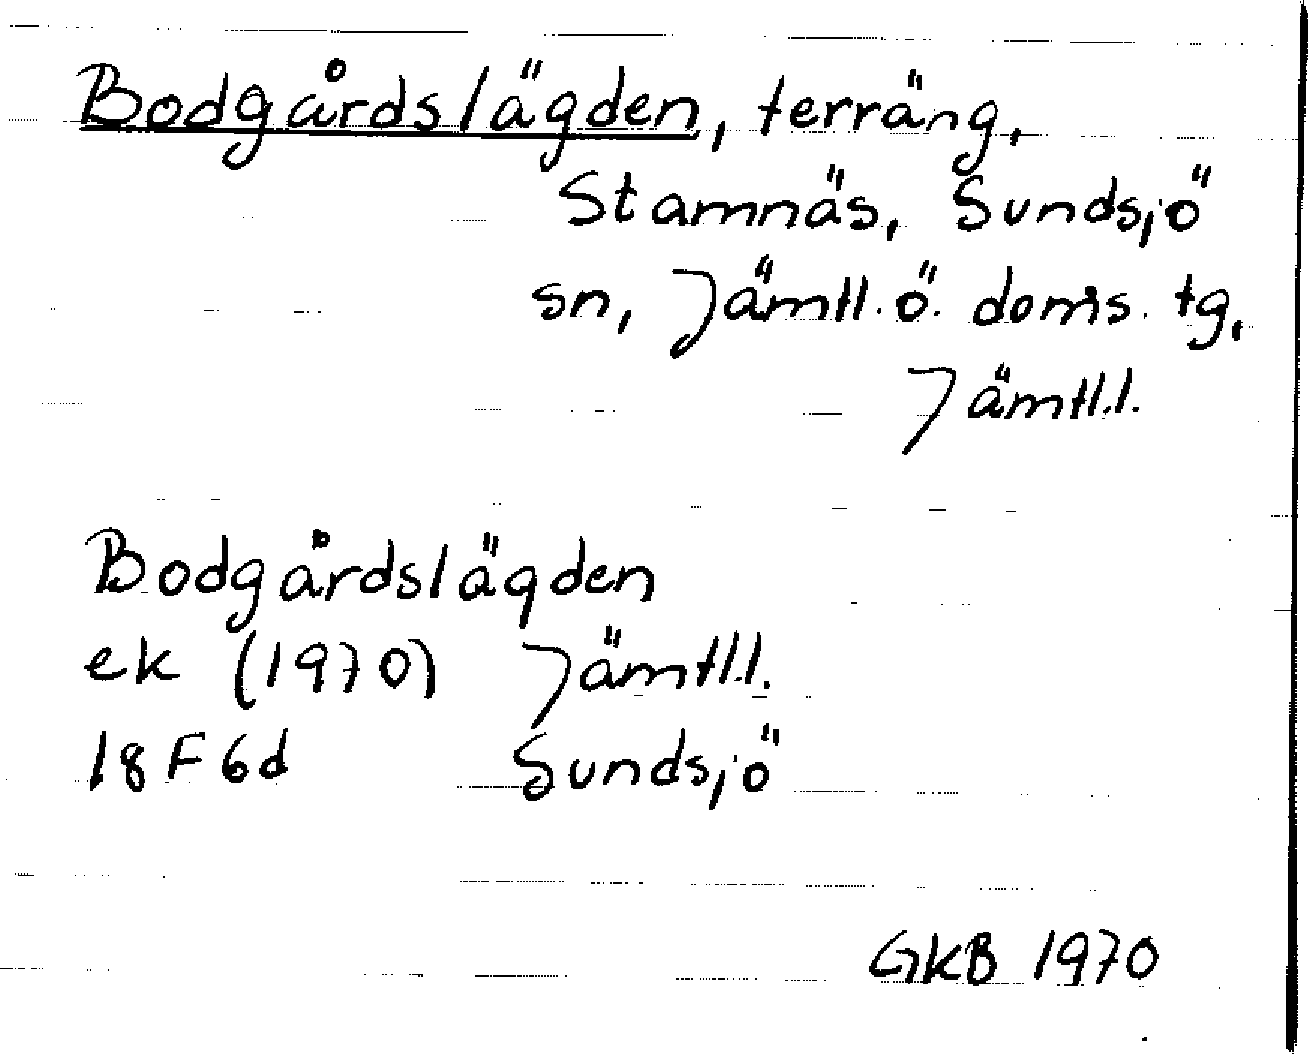 Bodgårdslägden, terräng,
Stamnäs, Sundsjö
sn, Jämtl. ö. doms. tg,
Jämtl.l.
Bodgårdslägden
ek (1970) Jämtl.l.
18F6d Sundsjö
GKB 1970